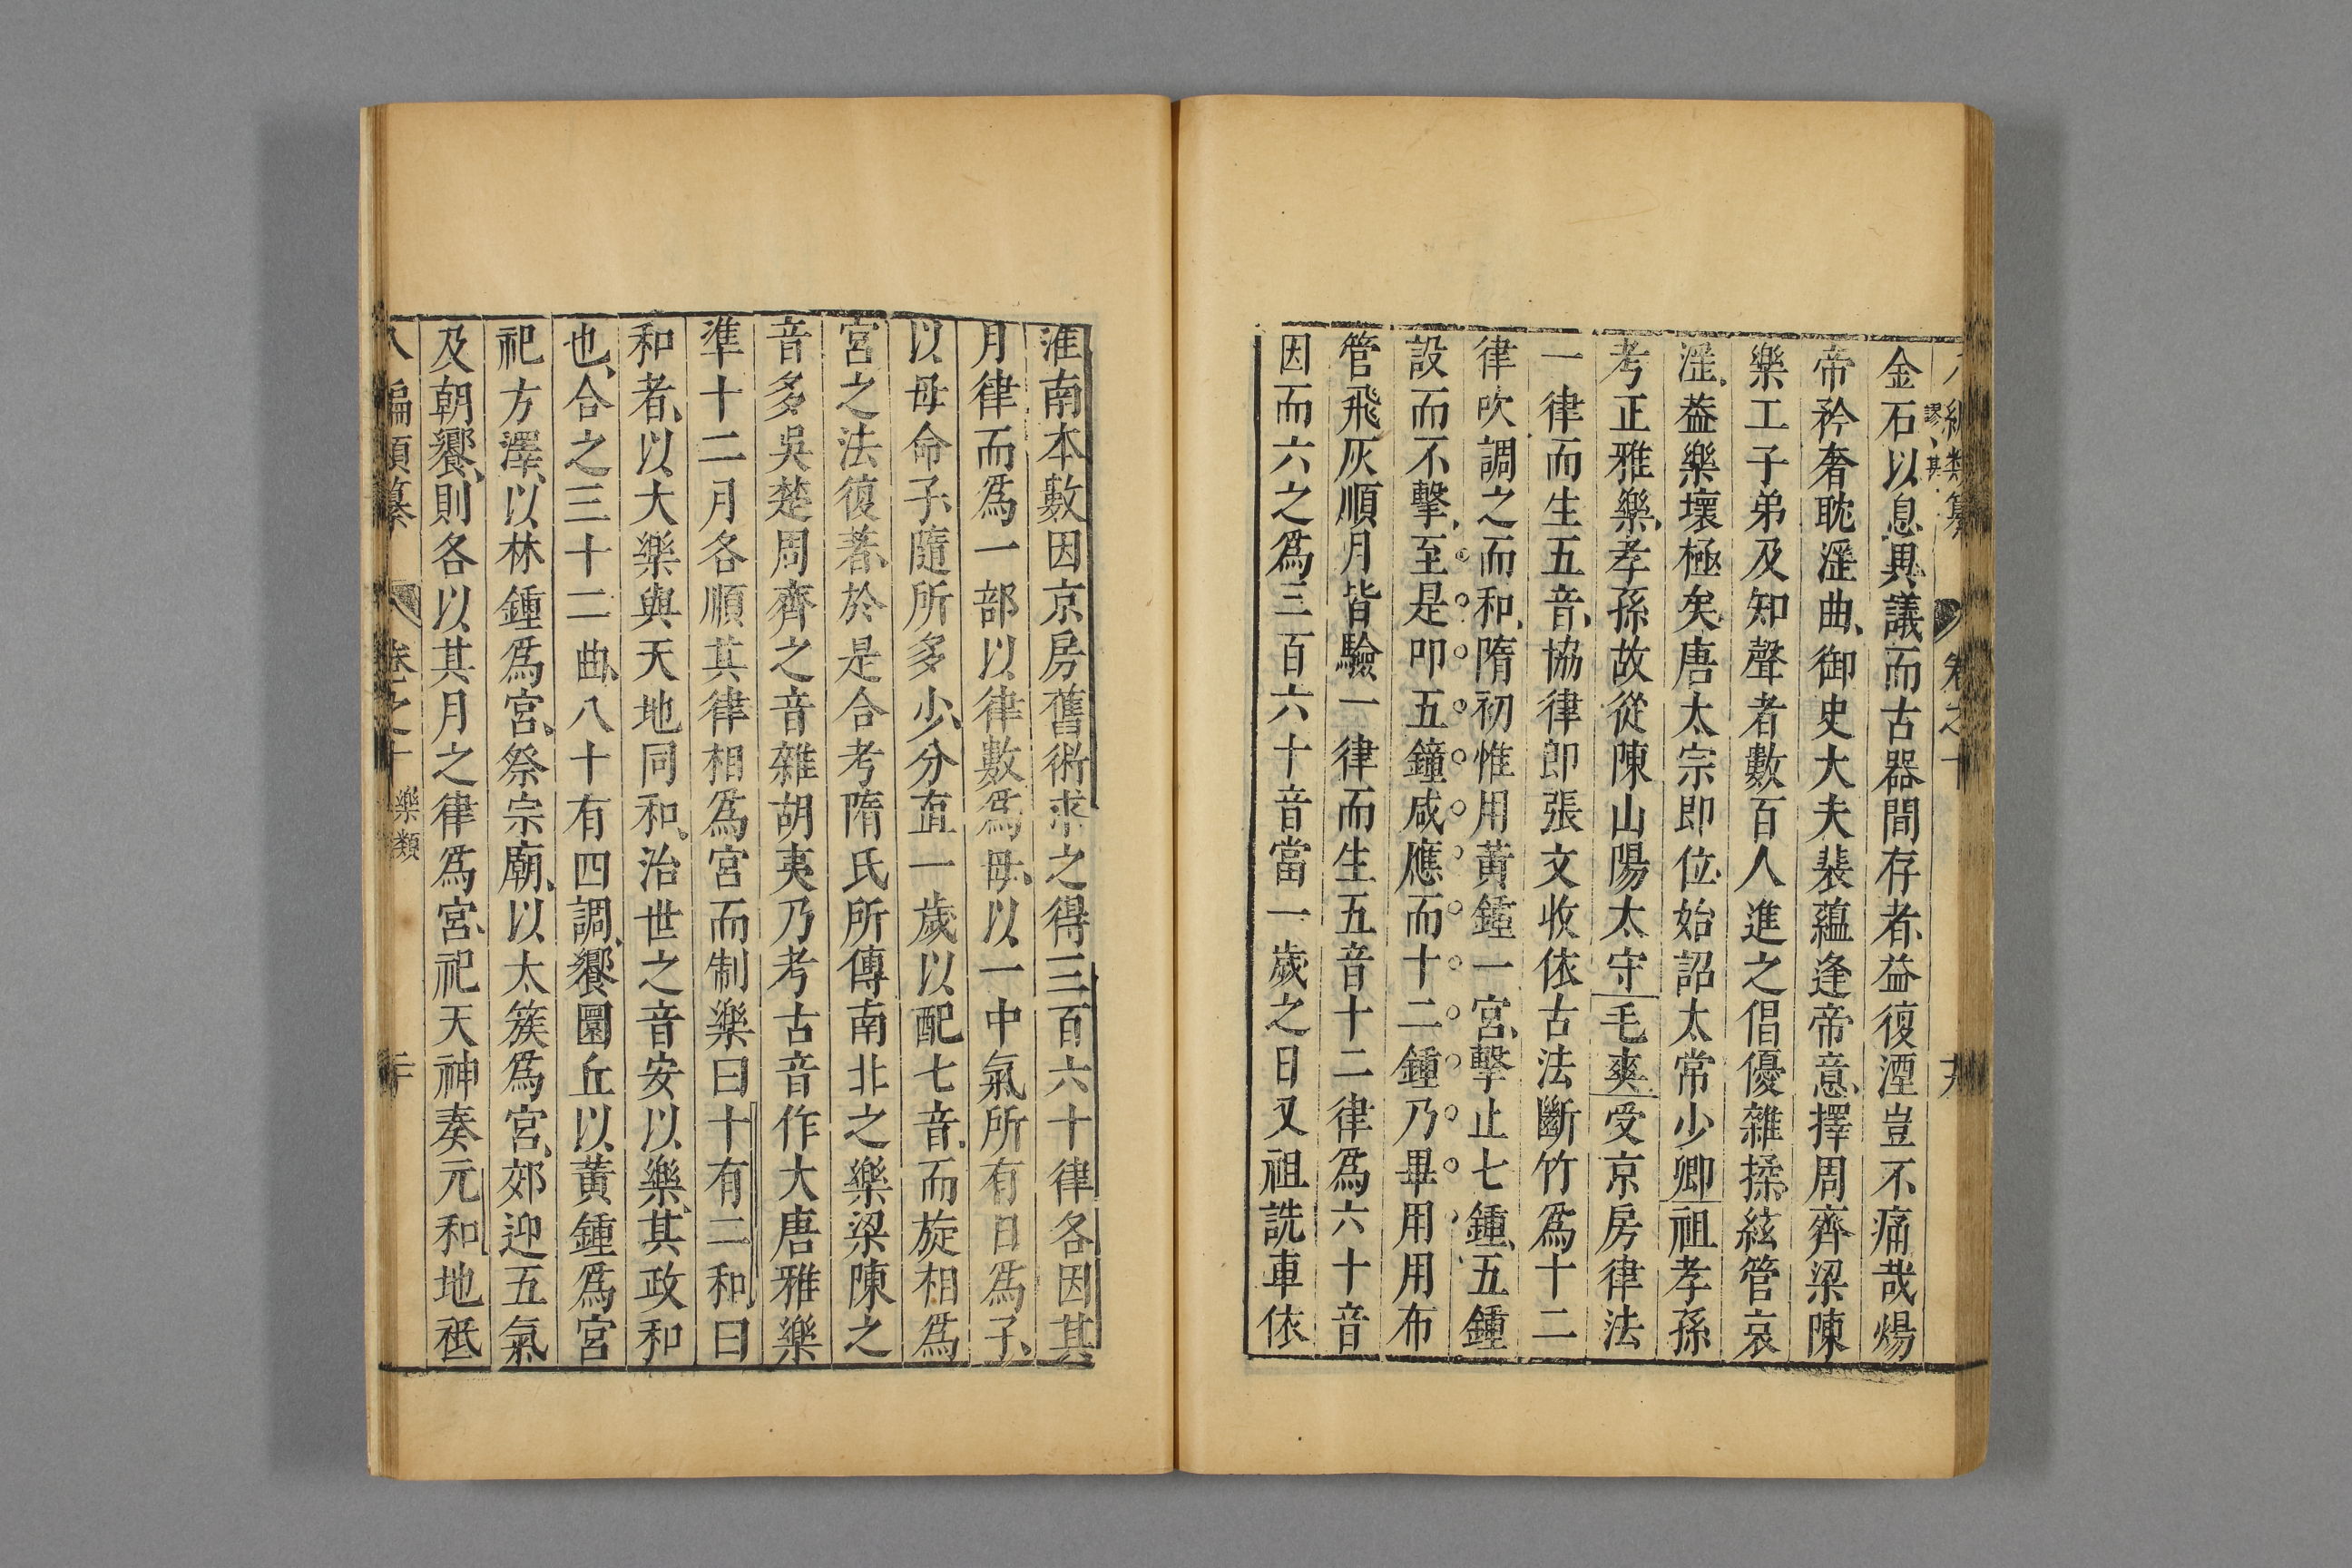 編類纂 卷之十
金石以息再議而古器間存者益復湮豈不痛哉煬
帝矜奢耽淫曲、御史大夫裴蘊逢帝意、擇周齊梁陳
樂工子弟及知聲者數百人進之倡優雜揉、絃管哀
淫、益樂壞極矣、唐太宗即位、始詔太常少卿祖孝孫
考正雅樂、孝孫故從陳山陽太守毛爽受京房律法
一律而生五音、協律即張文收依古法斷竹爲十二
律吹調之而和、隋初惟用黃鍾一宮、擊止七鍾、五鍾
設而不擊、至是叩五鐘咸應而十二鍾乃畢用用布
管飛灰順月皆驗一律而生五音十二律爲六十音
因而六之爲三百六十音當一歲之日又祖詵車依
淮南本數因京房舊術求之得三百六十律各因其
月律而爲一部以律數爲母、以一中氣所有日爲子、
以母命子、隨所多少、分直一歲以配七音、而旋相爲
宮之法復著、於是合考隋氏所傳南北之樂梁陳之
音多吳楚周齊之音雜胡夷乃考古音作大唐雅樂
準十二月各順其律相爲宮而制樂曰十有二和曰
和者、以大樂與天地同和、治世之音安以樂、其政和
也、合之三十二曲、八十有四調、饗圜丘以黃鍾爲宮
祀方澤、以林鍾爲宮、祭宗廟、以太簇爲宮、郊迎五氣
及朝饗、則各以其月之律爲宮、祀天神奏元和地祗
八編類纂 卷之十 樂類 二十